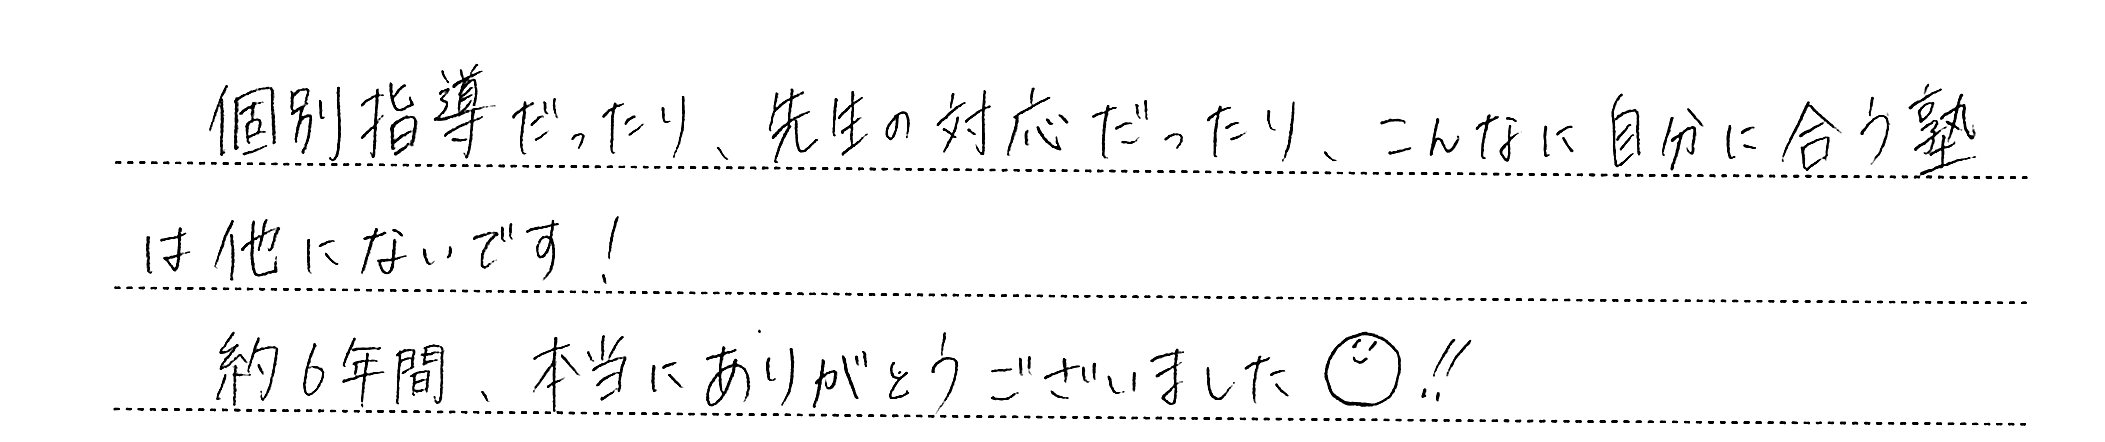 個別指導だったり、先生の対応だったり、こんなに自分に合う塾
は他にないです!
約6年間、本当にありがとうございました☺!!